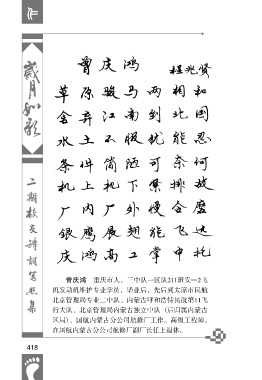 歲月如歌
二期校友詩詞
集
曾庆鸿
程兆贤
草原骏马两相知
舍弃江南到北国
水土不服犹能忍
条件简陋可奈何
机上机下紧排故
厂内厂外慢合磨
银鹰展翅能飞达
庆鸿高工掌中托
曾庆鸿 重庆市人。三中队一区队211班安—2飞
机发动机维护专业学员，毕业后，先后到太原市民航
北京管理局专业二中队、内蒙古呼和浩特民航第11飞
行大队、北京管理局内蒙古独立中队（后归属内蒙古
区局）、国航内蒙古分公司航修厂工作。高级工程师。
在国航内蒙古分公司航修厂副厂长任上退休。
418